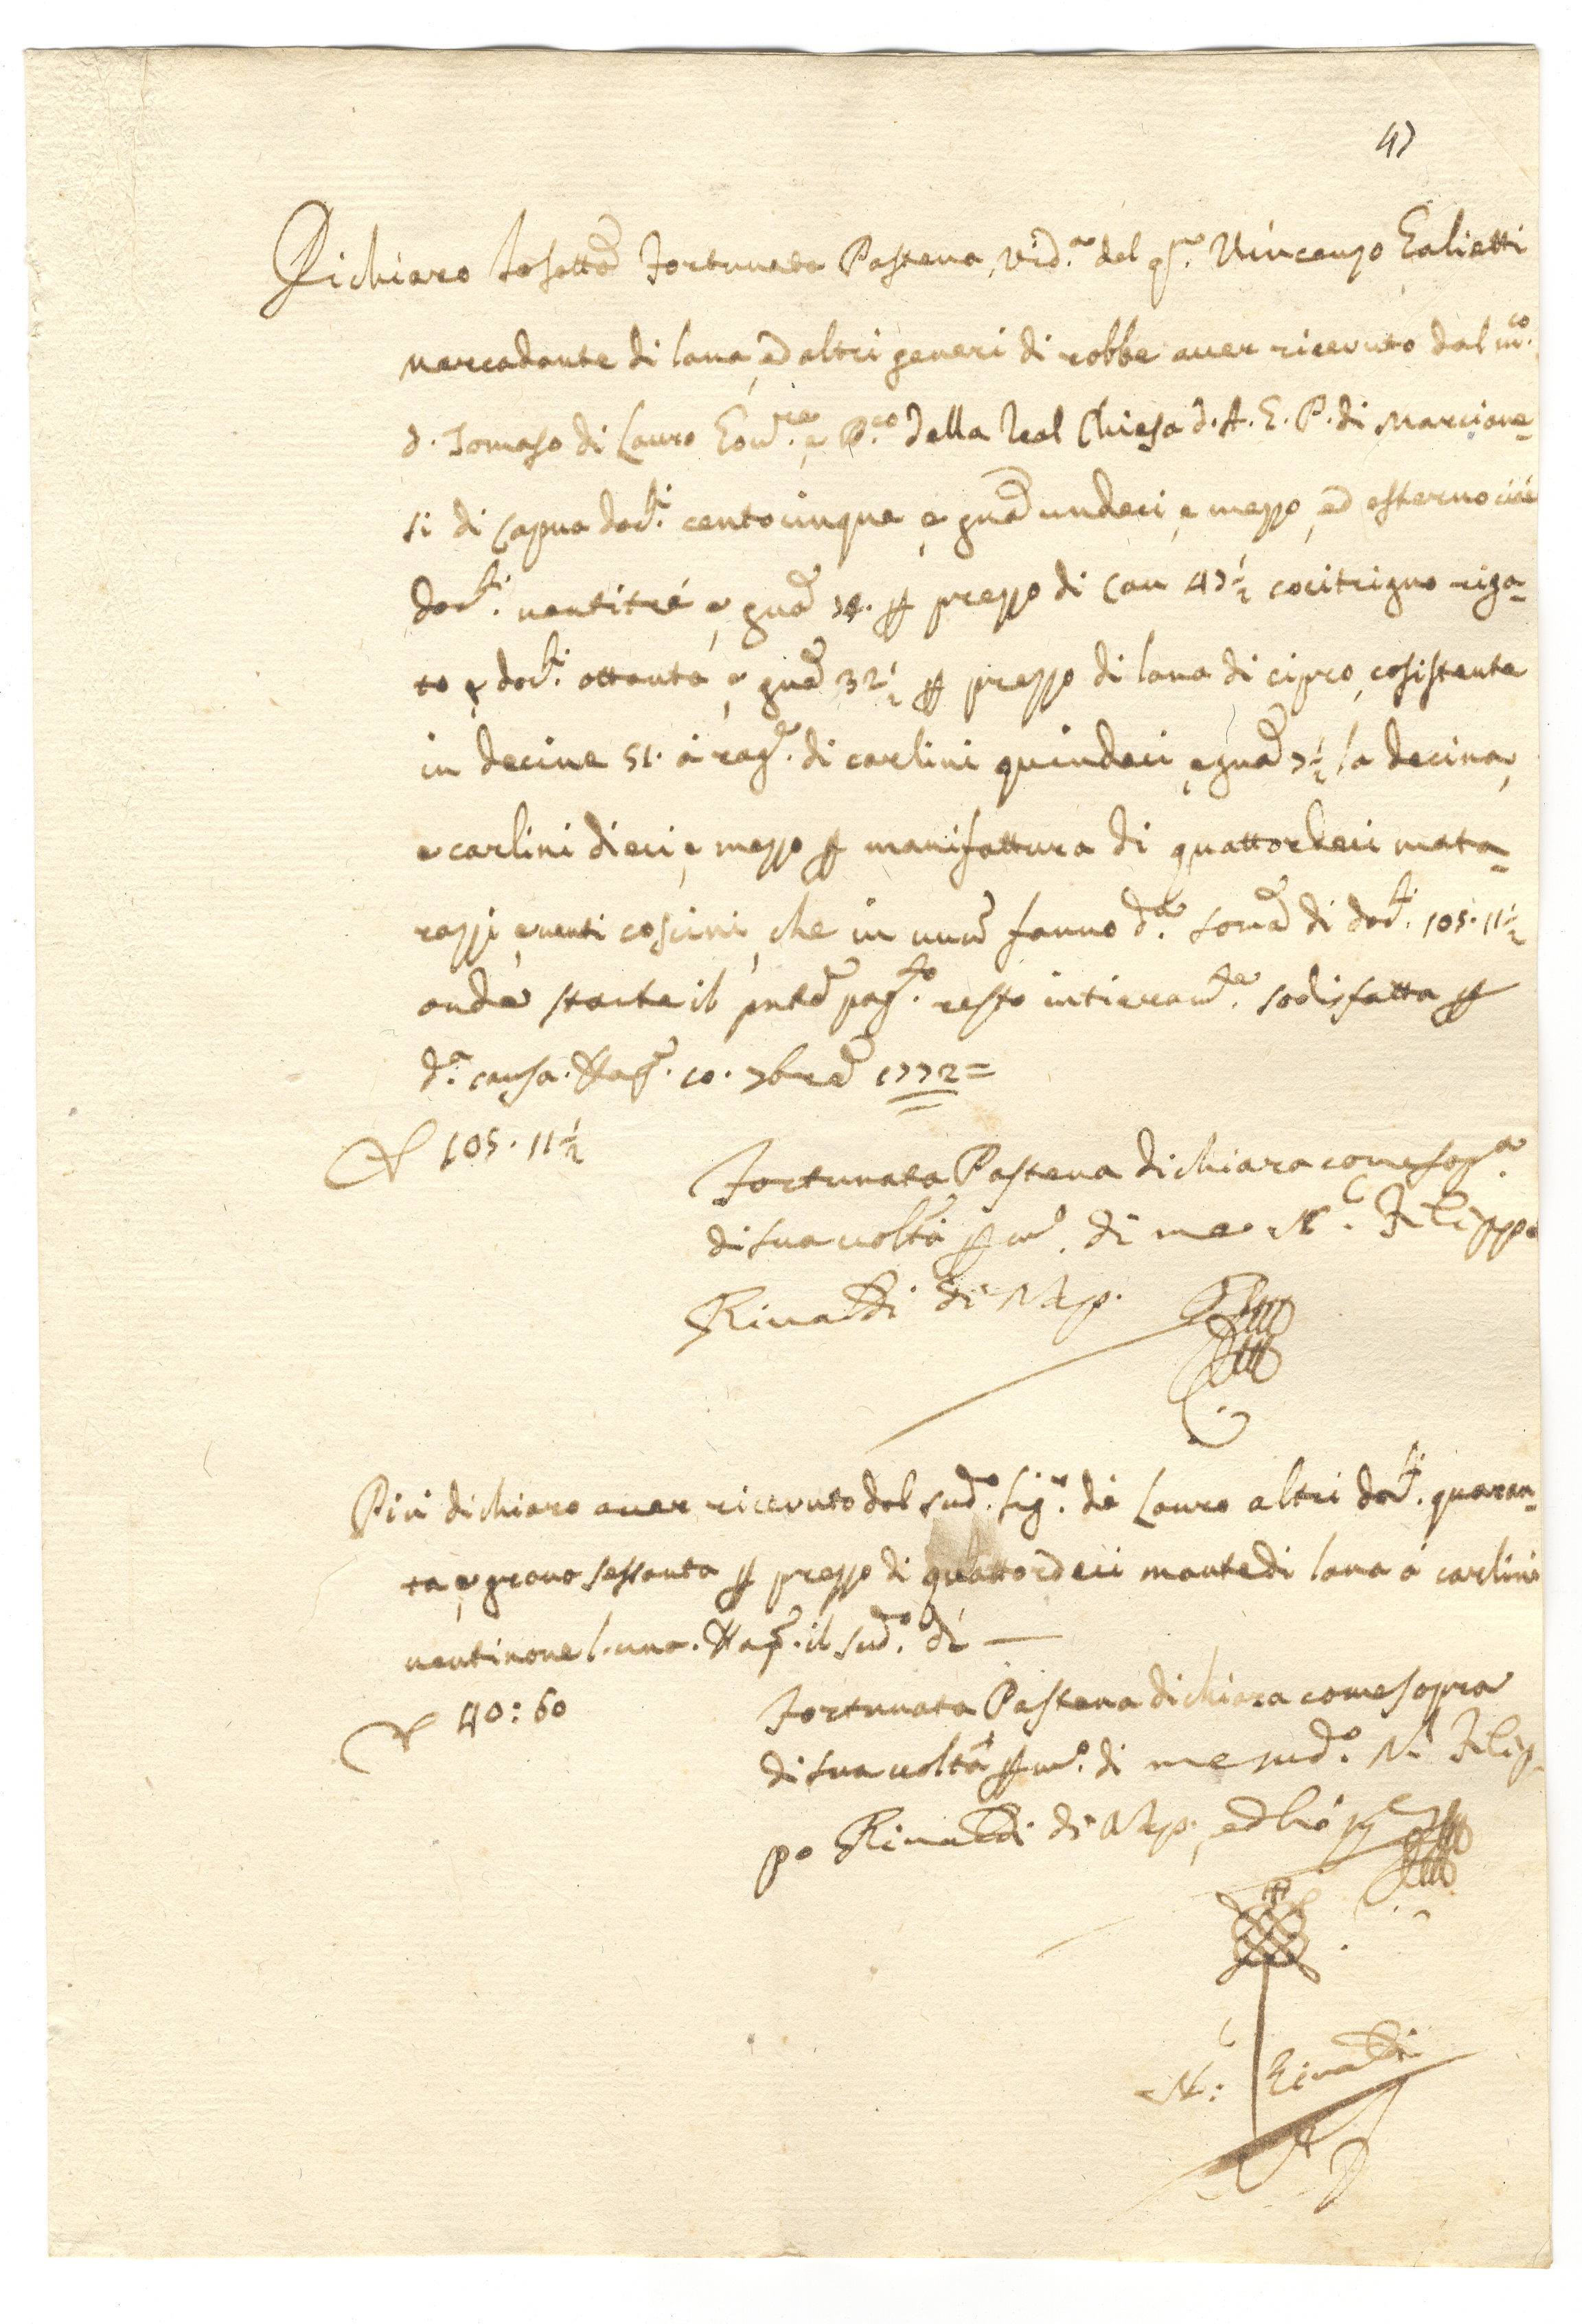 47
Dichiaro Io sottã Fortunata Pastena, vid.ª del qm. Vincenzo Galietti
Mercadante di lana, ed altri generi di robbe aver ricevuto dal m.co
d. Tomaso di Lauro Gov.re e P.co della Real Chiesa d. A. G. P. di Marciane=
si di Capua doc.ti centocinque, e gnã undeci, e mezzo, ed esterno cioè
doc.ti ventitré, e gnã 74. p prezzo di can 47½ cocitrigno riga=
to, e doc.ti ottanta, e gnã 32½ p prezzo di lana di cipro, cosistente
in decine 51. à rag.e di carlini quindeci, e gnã 7½ la decina,
e carlini dieci, e mezzo p manifattura di quattordeci mata=
razzi, e venti coscini, che in unũ fanno d.ª somã di doc.ti 105. 11½
onde stante il pntẽ pag.to resto intieram.te sodisfatta p
d.ª causa. Nap. 10. 7brẽ 1772=
105. 11½
Fortunata Pastena dichiara come sop.ª
di sua voltà p m.º di me N.r Filippo
Rinaldi di Nap.
Più dichiaro aver ricevuto dal sud.º Sig.r di Lauro altri doc.ti quaran=
ta, e grana sessanta p prezzo di quattordeci mante di lana à carlini
ventinove l'una. Nap. il sud.º dì —
40: 60
Fortunata Pastena dichiara come sopra
di sua voltà p m.º di me sud.º N.r Filip
po Rinaldi di Nap., ed hò
N.r Rinaldi